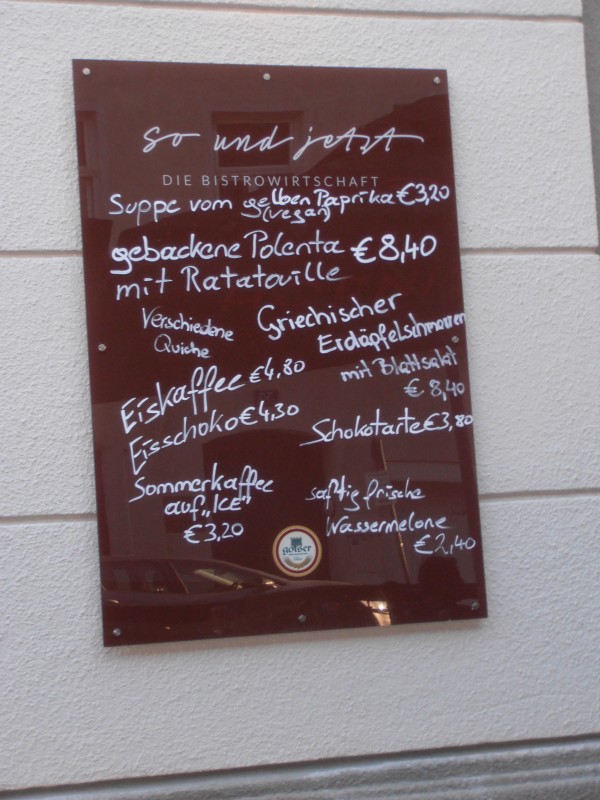 so und jetzt
DIE BISTROWIRTSCHAFT
Suppe vom gelben Paprika €3,20
(vegan)
gebackene Polenta €8,40
mit Ratatouille
Verschiedene
Quiche
Griechischer
Erdäpfelschmarren
mit Blattsalat
€ 8,40
Eiskaffee €4,80
Eisschoko €4,30
Schokotarte €3,80
Sommerkaffee
auf „ICE"
€3,20
saftig frische
Wassermelone
€2,40
golser